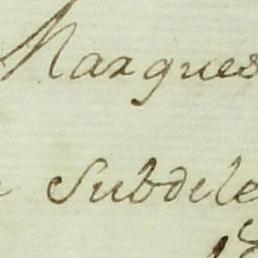 Marques
Subdele